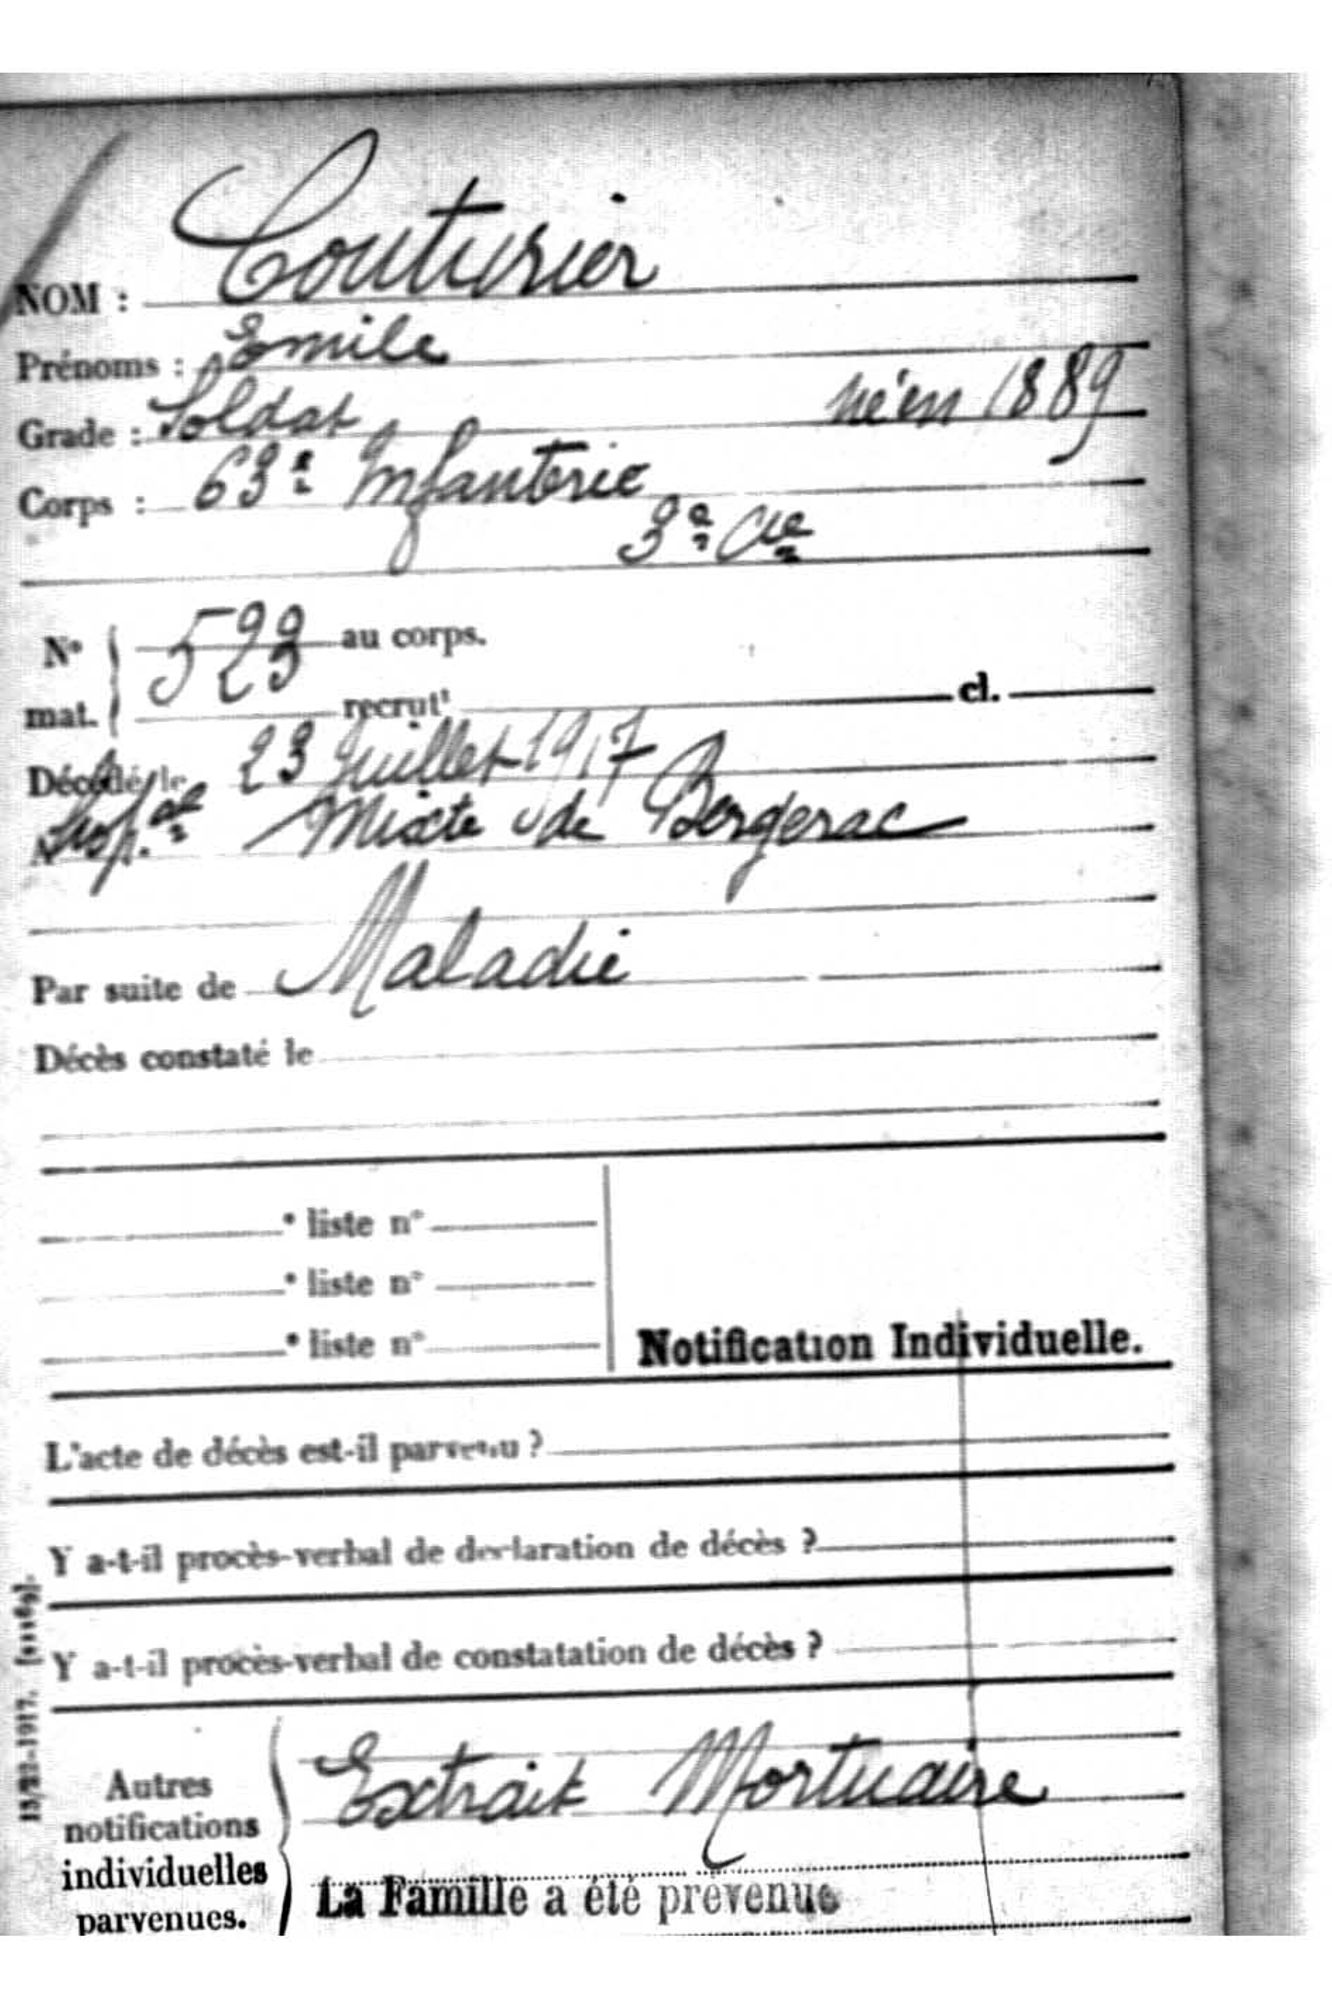 NOM : Couturier
Prénoms : Emile
Grade : Soldat né en 1889
Corps : 63e Infanterie
3e Cie
N° 523 au corps.
mat. recrutt cl.
Décédé le 23 Juillet 1917
Hospal Mixte de Bergerac
Par suite de Maladie
Décès constaté le
e liste n°
e liste n°
e liste n°
Notification Individuelle.
L'acte de décès est-il parvenu ?
Y a-t-il procès-verbal de déclaration de décès ?
Y a-t-il procès-verbal de constatation de décès ?
Autres notifications individuelles parvenues.
Extrait Mortuaire
La Famille a été prévenue